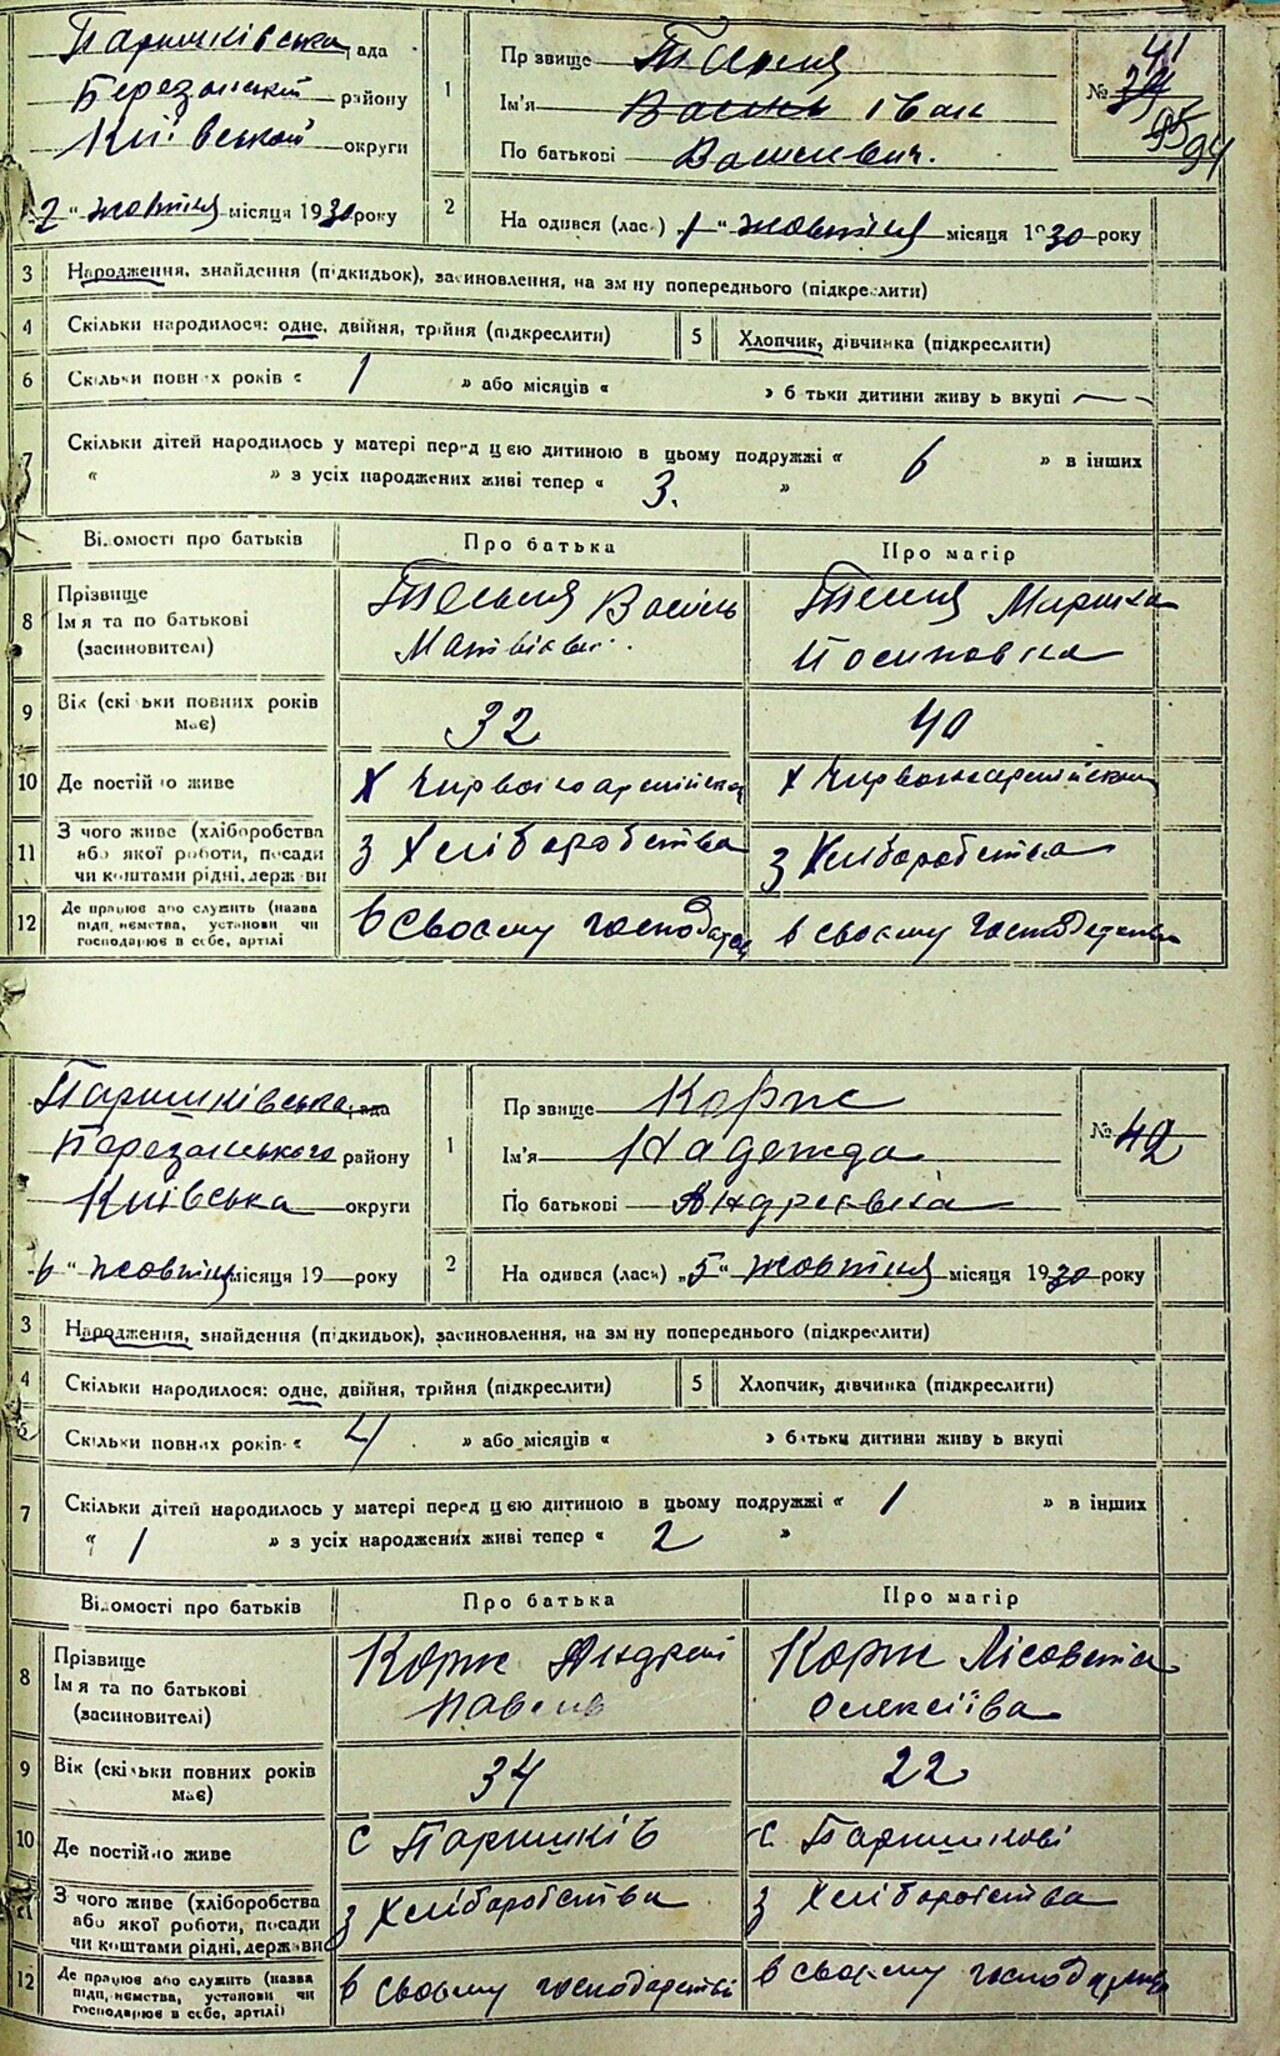 Паришківська рада
Березанській району
Київській округи
2 " жовтня місяця 1930 року
1
Пр звище
Ім'я Василь Іван
По батькові Василевич.
№ 41
95 94
2
На одився (лась) „1" жовтня місяця 1930 року
3 Народження, знайдення (підкидьок), засиновлення, на зм ну попереднього (підкреслити)
4 Скільки народилося: одне, двійня, трійня (підкреслити) 5 Хлопчик, дівчинка (підкреслити)
6 Скільки повних років « 1 » або місяців « » б тьки дитини живу ь вкупі —
7 Скільки дітей народилось у матері перед цією дитиною в цьому подружжі « 6 » в інших
« » з усіх народжених живі тепер « 3. »
Відомості про батьків Про батька Про матір
8 Прізвище
Ім я та по батькові
(засиновителі)
Василь
Матвієв
Маришка
Йосиповна
9 Вік (скільки повних років має) 32 40
10 Де постійно живе х Червоноармійська х Червоноармійська
11 З чого живе (хліборобства
або якої роботи, посади
чи коштами рідні, держави
з Хліборобства з Хліборобства
12 Де працює або служить (назва
підп, ємства, установи чи
господарює в себе, артілі
в своєму господарс в своєму господарстві
Паришківська рада
Березанського району
Київська округи
6 " жовтня місяця 19 — року
1
Пр звище Корж
Ім'я Надежда
По батькові Андреєвна
№ 42
2
На одився (лась) „5" жовтня місяця 1930 року
3 Народження, знайдення (підкидьок), засиновлення, на зм ну попереднього (підкреслити)
4 Скільки народилося: одне, двійня, трійня (підкреслити) 5 Хлопчик, дівчинка (підкреслити)
6 Скільки повних років « 4 » або місяців « » батьки дитини живу ь вкупі
7 Скільки дітей народилось у матері перед цією дитиною в цьому подружжі « 1 » в інших
« 1 » з усіх народжених живі тепер « 2 »
Відомості про батьків Про батька Про матір
8 Прізвище
Ім я та по батькові
(засиновителі)
Корж Андрей
Павлов
Корж Лісовета
Олексіїва
9 Вік (скільки повних років має) 34 22
10 Де постійно живе с Паришків с Паришкові
11 З чого живе (хліборобства
або якої роботи, посади
чи коштами рідні, держави
з Хліборобства з Хліборобства
12 Де працює або служить (назва
підп, ємства, установи чи
господарює в себе, артілі)
в своєму господарстві в своєму господарстві